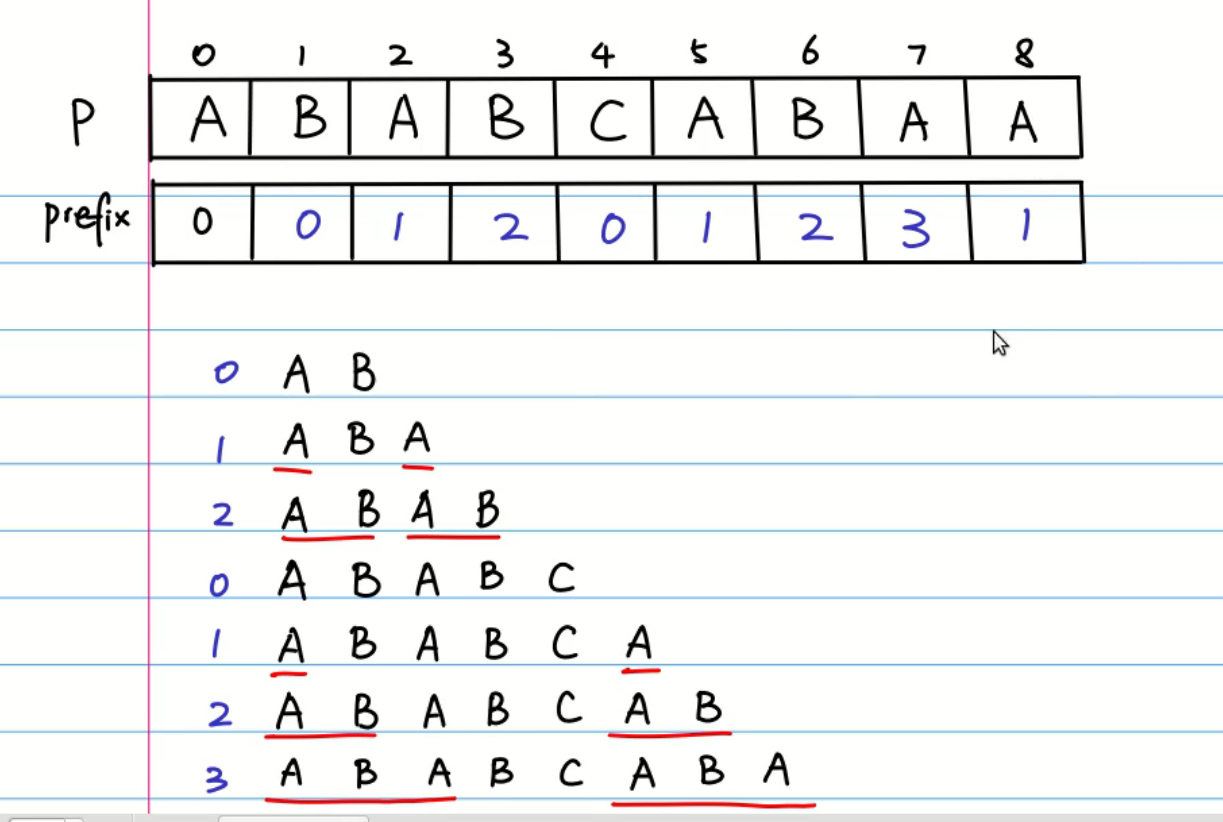 0 1 2 3 4 5 6 7 8
P A B A B C A B A A
prefix 0 0 1 2 0 1 2 3 1
0 A B
1 A B A
2 A B A B
0 A B A B C
1 A B A B C A
2 A B A B C A B
3 A B A B C A B A